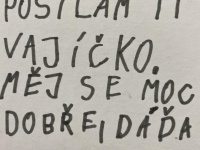 POSÍLÁM TI
VAJÍČKO.
MĚJ SE MOC
DOBŘE, DÁĎA